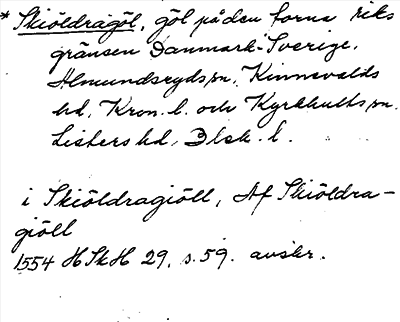 * Skiöldragöl, göl på den forna riks
gränsen Danmark-Sverige,
Almundsryds sn. Kinnevalds
hd, Kron. l. och Kyrkhults sn.
Listers hd, Blek. l.
i Skiöldragiöll, Af Skiöldra-
giöll
1554 HSkH 29, s. 59. avskr.